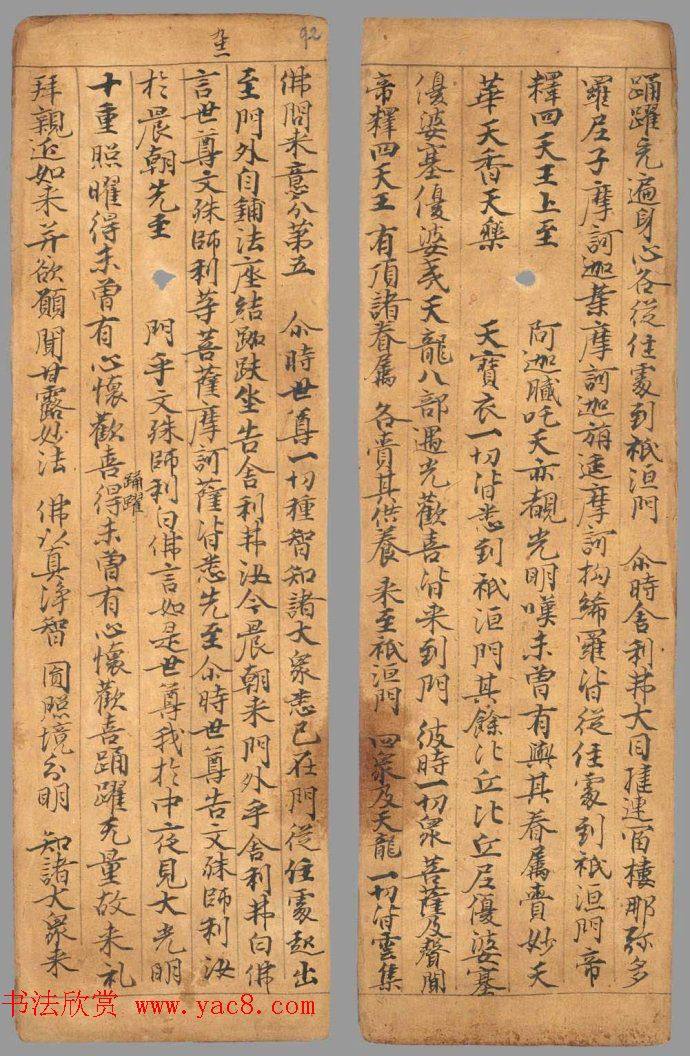 踊躍充遍身心各從住處到祇洹門 尒時舍利弗大目揵連富樓那弥多
羅尼子摩訶迦葉摩訶迦旃延摩訶拘絺羅皆從住處到祇洹門帝
釋四天王上至 阿迦膩吒天亦覩光明嘆未曾有與其眷属賷妙天
華天香天藥 天寶衣一切皆悉到祇洹門其餘比丘比丘尼優婆塞
優婆塞優婆夷天龍八部遇光歡喜皆来到門 彼時一切衆 菩薩及聲聞
帝釋四天王 有頂諸眷属 各賷其供養 来至祇洹門 四衆及天龍 一切皆雲集
92
佛問来意分第五 尒時世尊一切種智知諸大衆悉已在門從住處起出
至門外自鋪法座結跏趺坐告舍利弗汝今晨朝来門外乎舍利弗白佛
言世尊文殊師利等菩薩摩訶薩皆悉先至尒時世尊告文殊師利汝
於晨朝先至 門乎文殊師利白佛言如是世尊我於中夜見大光明
踊躍
十重照曜得未曾有心懷歡喜得未曾有心懷歡喜踊躍无量故来礼
拜親近如来并欲願聞甘露妙法 佛以真淨智 圓照境分明 知諸大衆来
书法欣赏 www.yac8.com